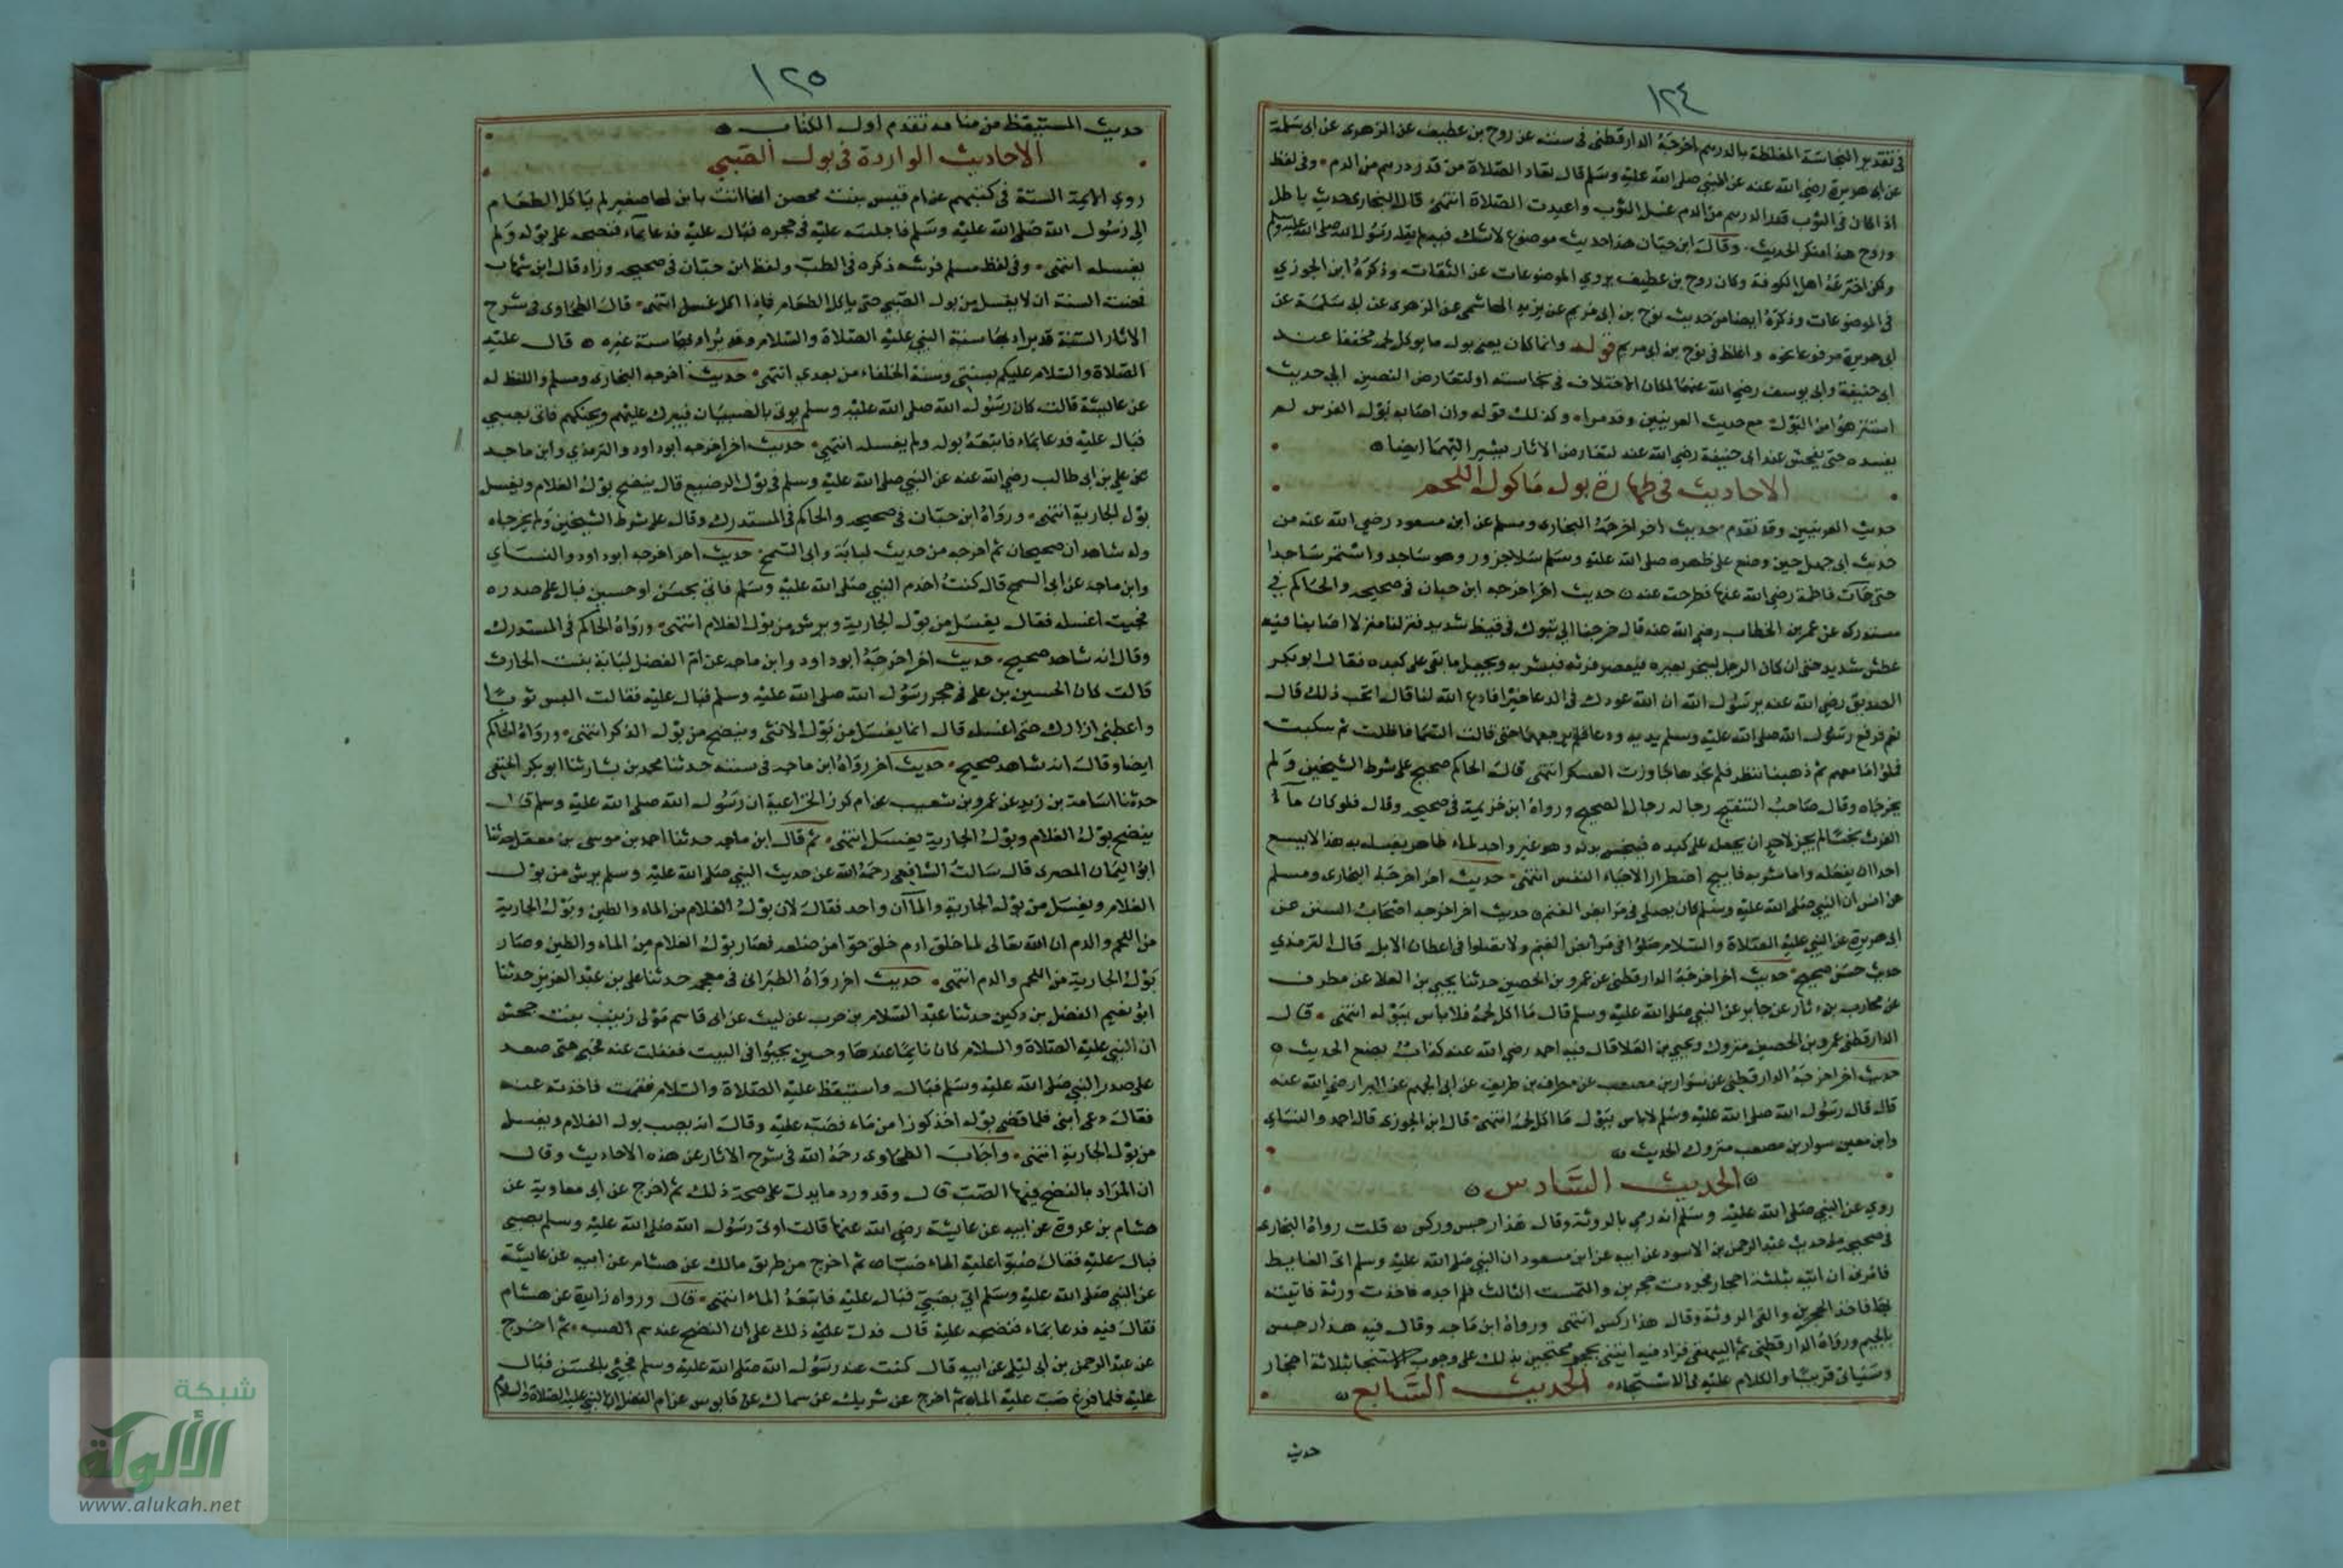 ١٢٤
في تقدير النجاسة المغلظة بالدرهم اخرجه الدارقطني في سننه عن روح بن عطيف عن الزهري عن ابي سلمة
عن ابي هريرة رضي الله عنه عن النبي صلى الله عليه وسلم قال تعاد الصلاة من قدر درهم من الدم وفي لفظ
اذا كان في الثوب قدر الدرهم من الدم غسل الثوب واعيدت الصلاة انتهى قال البخاري حديث باطل
وروح هذا منكر الحديث وقال ابن حبان هذا حديث موضوع لا شك فيه لم يقله رسول الله صلى الله عليه وسلم
ولكن اخترعه اهل الكوفة وكان روح بن عطيف يروي الموضوعات عن الثقات وذكره ابن الجوزي
في الموضوعات وذكره ايضا من حديث نوح بن ابي مريم عن يزيد الهاشمي عن الزهري عن ابي سلمة عن
ابي هريرة مرفوعا نحوه واغلظ في نوح بن ابي مريم قوله وانما كان يعني بول ما يوكل لحمه مخففا عند
ابي حنيفة وابي يوسف رضي الله عنهما لمكان الاختلاف في نجاسته او لتعارض النصين ابي حديث
استنزهوا من البول مع حديث العرنيين وقد مرا ه وكذلك قوله وان اصابه بول الفرس لم
يفسده حتى يفحش عند ابي حنيفة رضي الله عنه لتعارض الاثار يشير اليهما ايضا
الاحاديث في طهارة بول ماكول اللحم
حديث العرنيين وقد تقدم حديث اخر اخرجه البخاري ومسلم عن ابن مسعود رضي الله عنه من
حديث ابي جهل حين وضع على ظهره صلى الله عليه وسلم سلا جزور وهو ساجد واستمر ساجدا
حتى جاءت فاطمة رضي الله عنها فطرحته عنه حديث اخر اخرجه ابن حبان في صحيحه والحاكم في
مستدركه عن عمر بن الخطاب رضي الله عنه قال خرجنا الى تبوك في قيظ شديد فنزلنا منزلا اصابنا فيه
عطش شديد حتى ان كان الرجل لينحر بعيره فيعصر فرثه فيشربه ويجعل ما بقي على كبده فقال ابو بكر
الصديق رضي الله عنه يرسول الله ان الله عودك في الدعا خيرا فادع الله لنا قال اتحب ذلك قال
نعم فرفع رسول الله صلى الله عليه وسلم يديه ودعا فلم يرجعهما حتى قالت السما فاظلت ثم سكبت
فملوا ما معهم ثم ذهبنا ننظر فلم نجدها جاوزت العسكر انتهى قال الحاكم صحيح على شرط الشيخين ولم
يخرجاه وقال صاحب التنقيح رجاله رجال الصحيح ورواه ابن خزيمة في صحيحه وقال فلو كان ماء
الفرث نجسا لم يجز لاحد ان يجعل على كبده فينجس بدنه وهو غير واجد لماء طاهر يغسله به هذا لا يسع
احدا ان يفعله واما شربه فابيح اضطرارا لاحياء النفس انتهى حديث اخر اخرجه البخاري ومسلم
عن انس ان النبي صلى الله عليه وسلم كان يصلي في مرابض الغنم حديث اخر اخرجه اصحاب السنن عن
ابي هريرة عن النبي عليه الصلاة والسلام صلوا في مرابض الغنم ولا تصلوا في اعطان الابل قال الترمذي
حديث حسن صحيح حديث اخر اخرجه الدارقطني عن عمرو بن الحصين حدثنا يحيى بن العلا عن مطرف
عن محارب بن دثار عن جابر عن النبي صلى الله عليه وسلم قال ما اكل لحمه فلا باس ببوله انتهى قال
الدارقطني عمرو بن الحصين متروك ويحيى بن العلا قال فيه احمد رضي الله عنه كذاب يضع الحديث
حديث اخر اخرجه الدارقطني عن سوار بن مصعب عن مطرف بن طريف عن ابي الجهم عن البرا رضي الله عنه
قال قال رسول الله صلى الله عليه وسلم لا باس ببول ما اكل لحمه انتهى قال ابن الجوزي قال احمد والنساي
وابن معين سوار بن مصعب متروك الحديث
الحديث السادس
روي عن النبي صلى الله عليه وسلم انه رمى بالروثة وقال هذا رجس وركس قلت رواه البخاري
في صحيحه من حديث عبد الرحمن بن الاسود عن ابيه عن ابن مسعود ان النبي صلى الله عليه وسلم اتى الغايط
فامرني ان اتيه بثلثة احجار فوجدت حجرين والتمست الثالث فلم اجده فاخذت روثة فاتيته
بها فاخذ الحجرين والقى الروثة وقال هذا ركس انتهى ورواه ابن ماجه وقال فيه هذا رجس
بالجيم ورواه الدارقطني ثم البيهقي فزاد فيه ايتني بحجر محتجين بذلك على وجوب الاستنجا بثلاثة احجار
وسياتي قريبا والكلام عليه في الاستنجاء الحديث السابع
حديث
١٢٥
حديث المستيقظ من منامه تقدم اول الكتاب
الاحاديث الواردة في بول الصبي
روي الايمة الستة في كتبهم عن ام قيس بنت محصن انها اتت بابن لها صغير لم ياكل الطعام
الى رسول الله صلى الله عليه وسلم فاجلسه عليه في حجره فبال عليه فدعا بماء فنضحه على بوله ولم
يغسله انتهى وفي لفظ مسلم فرشه ذكره في الطب ولفظ ابن حبان في صحيحه وزاد قال ابن شهاب
فمضت السنة ان لا يغسل من بول الصبي حتى ياكل الطعام فاذا اكل غسل انتهى قال الطحاوي في شرح
الاثار السنة قد يراد بها سنة النبي عليه الصلاة والسلام وقد يراد بها سنة غيره قال عليه
الصلاة والسلام عليكم بسنتي وسنة الخلفاء من بعدي انتهى حديث اخرجه البخاري ومسلم واللفظ له
عن عايشة قالت كان رسول الله صلى الله عليه وسلم يوتى بالصبيان فيبرك عليهم ويحنكهم فاتي بصبي
فبال عليه فدعا بماء فاتبعه بوله ولم يغسله انتهى حديث اخر اخرجه ابوداود والترمذي وابن ماجه
عن علي بن ابي طالب رضي الله عنه عن النبي صلى الله عليه وسلم في بول الرضيع قال ينضح بول الغلام ويغسل
بول الجارية انتهى ورواه ابن حبان في صحيحه والحاكم في المستدرك وقال على شرط الشيخين ولم يخرجاه
وله شاهدان صحيحان ثم اخرجه من حديث لبابة وابي السمح حديث اخر اخرجه ابوداود والنساي
وابن ماجه عن ابي السمح قال كنت اخدم النبي صلى الله عليه وسلم فاتي بحسن او حسين فبال على صدره
فجيت اغسله فقال يغسل من بول الجارية ويرش من بول الغلام انتهى ورواه الحاكم في المستدرك
وقال انه شاهد صحيح حديث اخر اخرجه ابوداود وابن ماجه عن ام الفضل لبابة بنت الحارث
قالت كان الحسين بن علي في حجر رسول الله صلى الله عليه وسلم فبال عليه فقالت البس ثوبا
واعطني ازارك حتى اغسله قال انما يغسل من بول الانثى وينضح من بول الذكر انتهى ورواه الحاكم
ايضا وقال انه شاهد صحيح حديث اخر رواه ابن ماجه في سننه حدثنا محمد بن بشار ثنا ابو بكر الحنفي
حدثنا اسامة بن زيد عن عمرو بن شعيب عن ام كرز الخزاعية ان رسول الله صلى الله عليه وسلم قال
ينضح بول الغلام وبول الجارية يغسل انتهى ثم قال ابن ماجه حدثنا احمد بن موسى بن معقل حدثنا
ابو اليمان المصري قال سالت الشافعي رحمه الله عن حديث النبي صلى الله عليه وسلم يرش من بول
الغلام ويغسل من بول الجارية والماآن واحد فقال لان بول الغلام من الماء والطين وبول الجارية
من اللحم والدم ان الله تعالى لما خلق ادم خلق حوا من ضلعه فصار بول الغلام من الماء والطين وصار
بول الجارية من اللحم والدم انتهى حديث اخر رواه الطبراني في معجمه حدثنا علي بن عبد العزيز حدثنا
ابو نعيم الفضل بن دكين حدثنا عبد السلام بن حرب عن ليث عن ابي قاسم مولى زينب بنت جحش
ان النبي عليه الصلاة والسلام كان نايما عندها وحسين يحبوا في البيت فغفلت عنه فحبى حتى صعد
على صدر النبي صلى الله عليه وسلم فبال واستيقظ عليه الصلاة والسلام فقمت فاخذته عنه
فقال دعي ابني فلما قضى بوله اخذ كوزا من ماء فصبه عليه وقال انه يصب بول الغلام ويغسل
من بول الجارية انتهى واجاب الطحاوي رحمه الله في شرح الاثار عن هذه الاحاديث وقال
ان المراد بالنضح فيها الصب قال وقد ورد ما يدل على صحة ذلك ثم اخرج عن ابي معاوية عن
هشام بن عروة عن ابيه عن عايشة رضي الله عنها قالت اوتى رسول الله صلى الله عليه وسلم بصبي
فبال عليه فقال صبوا عليه الماء صبا ثم اخرج من طريق مالك عن هشام عن ابيه عن عايشة
عن النبي صلى الله عليه وسلم اتي بصبي فبال عليه فاتبعه الماء انتهى قال ورواه زايدة عن هشام
فقال فيه فدعا بماء فنضحه عليه قال فدل عليه ذلك على ان النضح عندهم الصب ثم اخرج
عن عبد الرحمن بن ابي ليلى عن ابيه قال كنت عند رسول الله صلى الله عليه وسلم فجيء بالحسن فبال
عليه فلما فرغ صب عليه الماء ثم اخرج عن شريك عن سماك عن قابوس عن ام الفضل ان النبي عليه الصلاة والسلام
شبكة
الألوكة
www.alukah.net